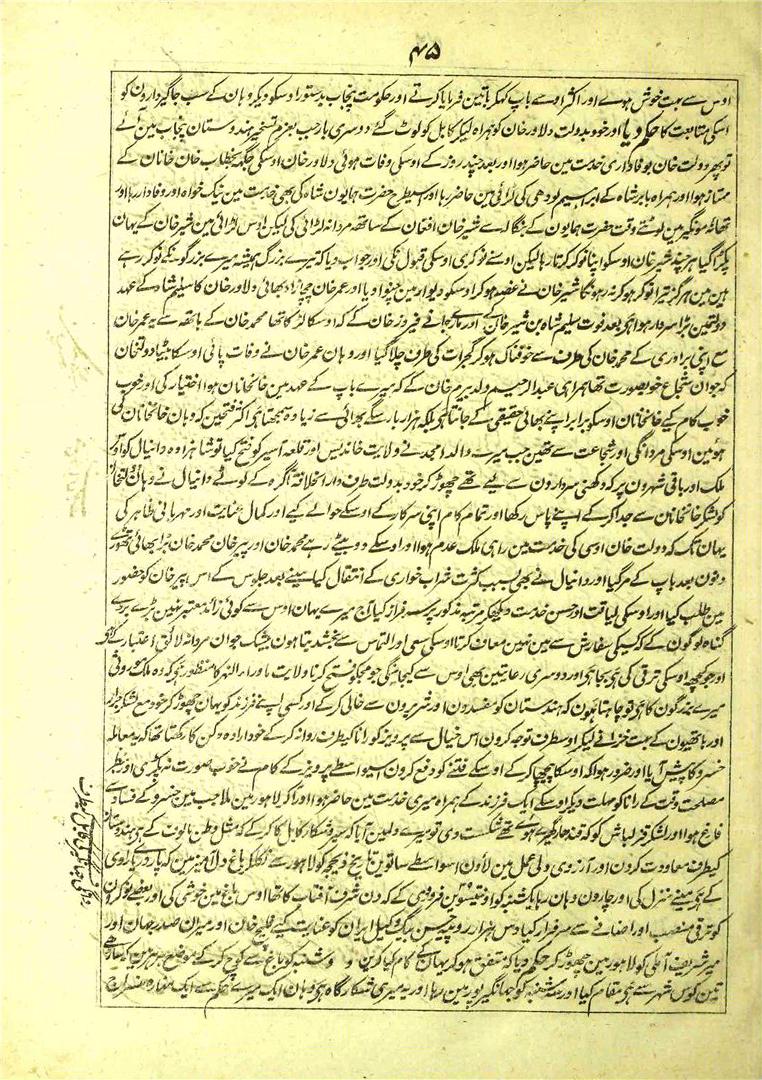 ۴۵
اوس سے بہت خوش ہوے اور اکثر اوسے باپ کہکر باتین فرمایا کرتے اور حکومت پنجاب بدستور اوسکو دیکر وہان کے سب جاگیردارون کو
اسکی متابعت کا حکم دیا اور خود بدولت دلاور خان کو ہمراہ لیکر کابل کو لوٹ گئے دوسری بار جب بعزم تسخیر ہندوستان پنجاب مین آئے
تو پھر دولت خان بوفاداری خدمت مین حاضر ہوا اور بعد چند روز کے اوسکی وفات ہوئی دلاور خان اوسکی جگہ بخطاب خان خانان کے
ممتاز ہوا اور ہمراہ بابر شاہ کے ابراہیم لودھی کی لڑائی مین حاضر رہا اور اسیطرح حضرت ہمایون شاہ کی بھی خدمت مین نیک خواہ اور وفادار رہا اور
تھانہ مونگیر مین لوٹتے وقت حضرت ہمایون کے بنگالہ سے شیر خان افغان کے ساتھ مردانہ لڑائی کی لیکن اوس لڑائی مین شیر خان کے یہان
پکڑا گیا ہر چند شیر خان اوسکو اپنا نوکر کرتا رہا لیکن اوسنے نوکری اوسکی قبول نکی اور جواب دیا کہ تیرے بزرگ ہمیشہ میرے بزرگونکے نوکر رہے
ہین مین ہرگز تیرا نوکر ہوکر نہ رہونگا شیر خان نے غصہ ہوکر اوسکو دیوار مین چنوا دیا اور عمر خان چچازاد بھائی دلاور خان کا سلیم شاہ کے عہد
دولتمین بڑا سردار ہوا ہی بعد فوت سلیم شاہ بن شیر خان کے اور مارے جانے فیروز خان کے کہ اوسکا لڑکا تھا محمد خان کے ہاتھ سے یہ عمر خان
مع اپنی برادری کے محمد خان کی طرف سے خوفناک ہوکر گجرات کی طرف چلا گیا اور وہان عمر خان نے وفات پائی اوسکا بیٹا دولتخان
کہ جوان شجاع خوبصورت تھا ہمراہی عبد الرحیم ولد بیرم خان کے کہ میرے باپ کے عہد مین خانخانان ہوا اختیار کی اور خوب
خوب کام کیے خانخانان اوسکو برابر اپنے بھائی حقیقی کے جانتا تھا بلکہ ہزار بار سگے بھائی سے زیادہ سمجھتا ہی اکثر فتحین کہ وہان خانخانان کی
ہوئین اوسکی مردانگی اور شجاعت سے تھین جب میرے والد امجد نے ولایت خاندیس اور قلعہ آسیر کو فتح کیا تو شاہزادہ دانیال کو اوس
ملک اور باقی شہرون پر کہ دکھنی سردارون سے لیے تھے چھوڑ کر خود بدولت طرف دار الخلافۃ آگرہ کے لوٹے دانیال نے وہان دولتخان
کو لشکر خانخانان سے جدا کر کے اپنے پاس رکھا اور تمام کام اپنی سرکار کے اوسکے حوالے کیے اور کمال عنایت اور مہربانی ظاہر کی
یہان تک کہ دولت خان اوسی کی خدمت مین راہی ملک عدم ہوا اور اوسکے دو بیٹے رہے محمد خان اور پیر خان محمد خان بڑا بھائی تھوڑے
دنون بعد باپ کے مرگیا اور دانیال نے بھی بسبب کثرت شراب خواری کے انتقال کیا مینے بعد جلوس کے اس پیر خان کو حضور
مین طلب کیا اور اوسکی لیاقت اور حسن خدمت دیکھکر مرتبہ مذکور پر سرفراز کیا آج میرے یہان اوس سے کوئی زائد معتبر نہین بڑے بڑے
گناہ لوگون کے کہ کسیکی سفارش سے مین نہین معاف کرتا اوسکی سعی اور التماس سے بخشدیتا ہون بیشک جوان مردانہ لائق اعتبار کے ہی
اور جو کچھ اوسکی ترقی کی ہی بجا ہی اور دوسری رعایتین بھی اوس سے کیجائنگی جو مجکو فتح کرنا ولایت ماوراء النہر کا منظور ہی کہ وہ ملک موروثی
میرے بزرگون کا ہی تو چاہتا ہون کہ ہندستان کو مفسدون اور شریرون سے خالی کر کے اور کسی اپنے فرزند کو یہان چھوڑ کر خود مع لشکر جرار
اور ہاتھیون کے بہت خزانے لیکر اوسطرف توجہ کرون اس خیال سے پرویز کو رانا کیطرف روانہ کر کے خود ارادہ دکن کا رکھتا تھا کہ یہ معاملہ
خسرو کا پیش آیا اور ضرور ہوا کہ اوسکا پیچھا کر کے اوسکے فتنے کو دفع کرون اسیواسطے پرویز کے کام نے خوب صورت نہ پکڑی اور بنظر
مصلحت وقت کے رانا کو مہلت دیکر اوسکے ایک فرزند کے ہمراہ میری خدمت مین حاضر ہوا اور آکر لاہور مین ملا جب مین خسرو کے فساد سے
فارغ ہوا اور لشکر قزلباش کو کہ قندھار گھیرے ہوئے تھے شکست دی تو میرے دلمین آیا کہ سیر و شکار کابل کا کر کے کہ مثل وطن مالوف کے ہی ہندوستان
کیطرف معاودت کرون اور آرزوے دلی عمل مین لاؤن اسواسطے ساتوین تاریخ ذیحجہ کو لاہور سے نکلکر باغ دلامیز مین کہ پار دریائے راوی
کے ہی مینے منزل کی اور چار دن وہان رہا یکشنبہ کو اونیسوین فروردی کے کہ دن شرف آفتاب کا تھا اوس باغ مین خوشی کی اور بعضے نوکرون
کو ترقی منصب اور اضافے سے سرفراز کیا دس ہزار روپیہ حسن بیگ وکیل ایران کو عنایت کیے قلیچ خان اور میران صدر جہان اور
میر شریف آملی کو لاہور مین چھوڑ کر حکم دیا کہ متفق ہوکر یہان کے کام کیا کرین دوشنبہ کو باغ سے کوچ کر کے موضع ہرہر مین کہ ساڑھے
تین کوس شہر سے ہی مقام کیا اور سہ شنبہ کو جہانگیرپور مین رہا اور یہ میری شکارگاہ ہی وہان ایک میرے حکم سے ایک منارہ